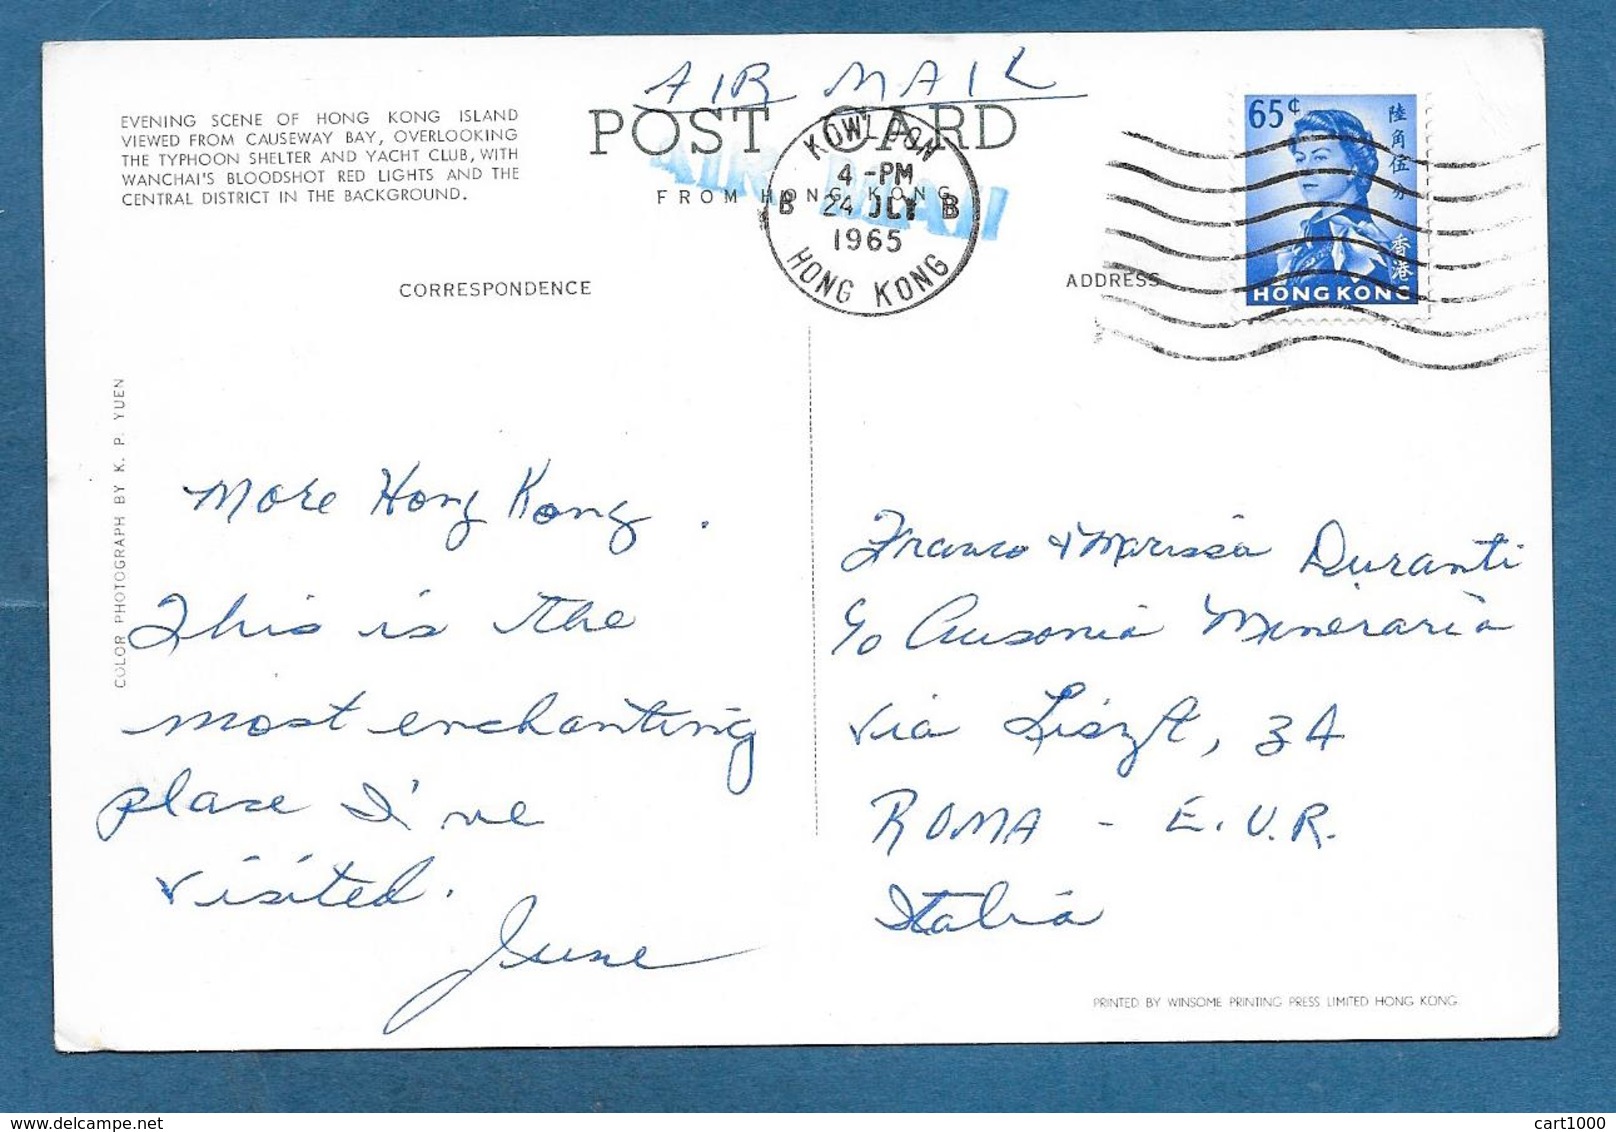 AIR MAIL
EVENING SCENE OF HONG KONG ISLAND
VIEWED FROM CAUSEWAY BAY, OVERLOOKING
THE TYPHOON SHELTER AND YACHT CLUB, WITH
WANCHAI'S BLOODSHOT RED LIGHTS AND THE
CENTRAL DISTRICT IN THE BACKGROUND.
POST CARD
AIR MAIL
FROM HONG KONG
KOWLOON
4 -PM
B 24 JLY B
1965
HONG KONG
65¢
陸角伍分
香港
HONG KONG
CORRESPONDENCE
ADDRESS
COLOR PHOTOGRAPH BY K. P. YUEN
More Hong Kong.
This is the
most enchanting
place I've
visited.
June
Franco & Marissa Duranti
c/o Ausonia Mineraria
Via Liszt, 34
ROMA - E.U.R.
Italia
PRINTED BY WINSOME PRINTING PRESS LIMITED HONG KONG.
cart1000